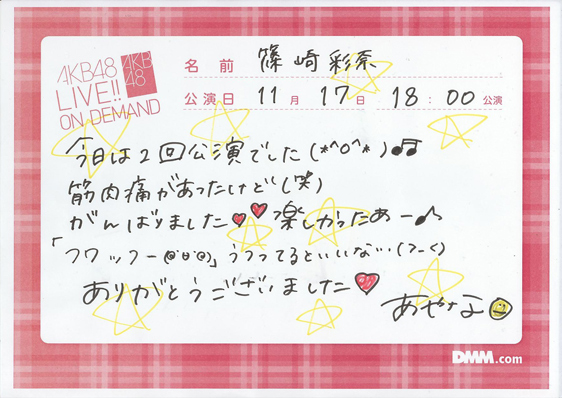 AKB48
LIVE!!
ON DEMAND
AKB
48
名前 篠崎彩奈
公演日 11月17日 18:00公演
今日は2回公演でした(*^o^*)♫
筋肉痛があったけど(笑)
がんばりました♥♥楽しかったあー♪
「フワッフー@'ω'@)」うつってるといいな…(つ-<)
ありがとうございました♥
あやなん
DMM.com